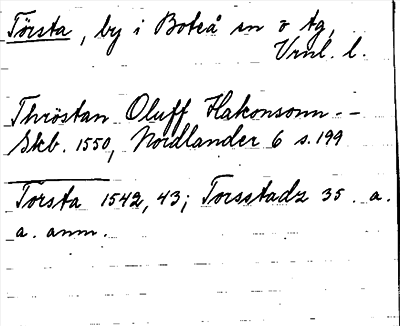 Törsta, by i Boteå sn o tg,
Vrnl. l.
Thröstan Oluff Hakonsonn --
Skb. 1550, Nordlander 6 s. 199
Torsta 1542, 43; Torsstadz 35. a.
a. anm.